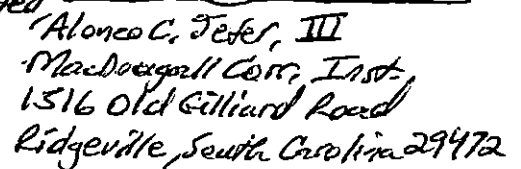 Alonzo C. Jeter, III
MacDougall Corr. Inst.,
1516 Old Gilliard Road
Ridgeville, South Carolina 29472